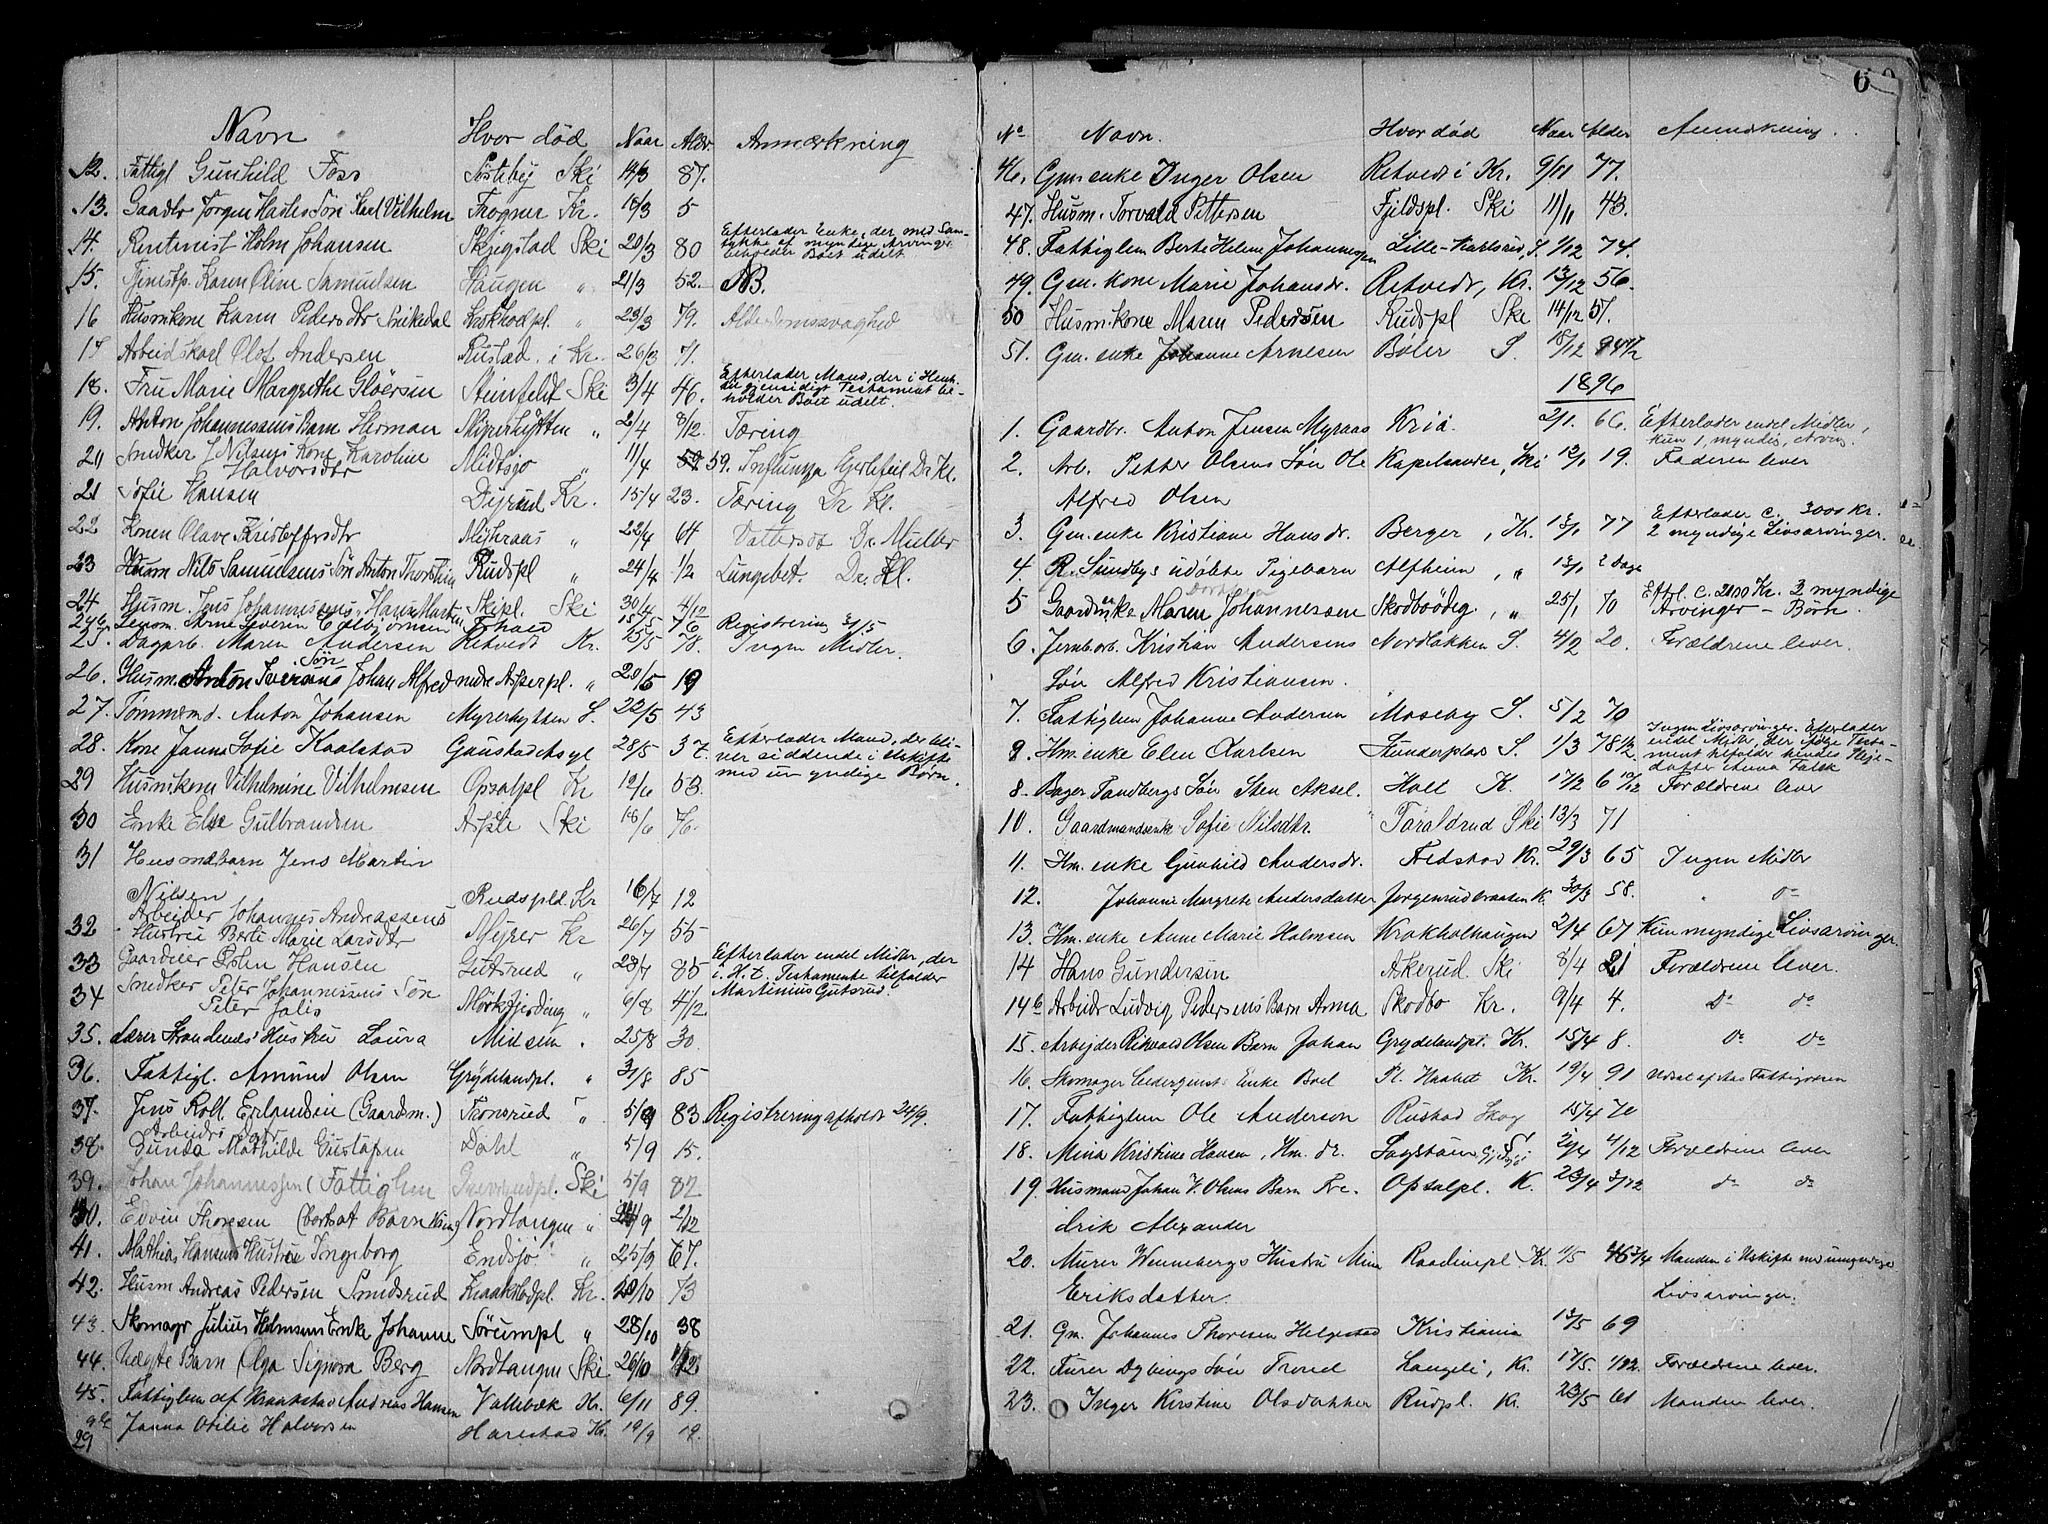 Navn Hvor död Naar Alder Anmærkning
12. Fattigl Gunhild Foss Ski 14/3 87.
13. Gaadbr Jörgen Sön Karl Vilhelm Frogner Kr. 18/3 5
14. Rentenist Holm Johansen Skjegstad Ski 20/3 80 Efterlader Enke, der med Sam-
tykke af myndige Arvinger
beholder Boet udelt
15. Tjenestp. Karen Oline Samuelsen Haugen " 21/3 52. NB.
16 Husmkone Karen Pedersdtr Snikedal " 23/3 79. Alderdomssvaghed
17 Arbeidskarl Olof Andersen Rustad i Kr. 26/3 71.
18. Fru Marie Margrethe Glöersen Steinfeldt Ski 3/4 46. Efterlader Mand, der i Henh.
til gjensidigt Testament be-
holder Boet udelt.
19. Anton Johannesens Barn Herman Myrerhytten " 2/4 8/12. Tæring
20 Snedker J Nilsens Kone Karoline
Halvorsdtr Midtsjö " 11/4 59. Influensa Hjertefeil Dr Kl.
21 Sofie Hansen Kr. 15/4 23. Tæring Dr Kl.
22 Konen Olave Kristoffersdtr " 22/4 64 Vattersot Dr. Müller
23 Husm Nils Samuelsens Sön Anton Thorstein Rudspl " 24/4 1/2 Lungebet. Dr. Kl.
24 Husm. Jens Johannesens Hans Martin Skipl. Ski 30/4 4/10
24b Severin 15/5 76 Registrering 30/5
25. Dagarb. Maren Andersen Retvedt Kr. 15/5 78. Ingen Midler.
26. Husm Anton Iversens Sön Johan Alfred nedre Asperpl. " 20/5 19
27. Tömmermd. Anton Johansen Myrerhytten S. 22/5 43
28. Kone Janna Sofie Kaalstad Gaustad Asyl 28/5 37. Efterlader Mand, der bli-
ver siddende i Uskifte
med umyndige Börn.
29 Husmkone Vilhelmine Vilhelmsen Opsalpl Kr 12/6 53.
30 Enke Else Gulbrandsen Ski 18/6 76.
31 Husmdbarn Jens Martin
Nilsen Rudspld. Kr 16/7 12
32 Arbeider Johannes Andreassens
Hustru Berte Marie Larsdtr Myrer Kr 26/7 55
33 Gaardeier Hansen Gutsrud " 28/7 85 Efterlader endel Midler, der
i H. t. Testamente tilfalder
Martinius Gutsrud.
34 Snedker Peter Johannesens Sön
Peter Mörkfjerding " 6/8 4/12
35. Lærer Strandenes' Hustru Laura 25/8 30.
36. Fattigl. Amund Olsen Grydelandpl. " 31/8 85
37. Jens Roll Erlandsen (Gaardm.) Tronsrud " 5/9 83. Registrering afholdt 24/9.
38. Arbeiders Datr
Gunda Mathilde Gustafsen Dahl " 5/9 15.
39. Johan Johannessen (Fattiglem Ski 5/9 82
40. Edvin Thoresen (bortsat Barn Nordtangen " 9 2/12
41. Mathias Hansens Hustru Ingeborg Endsjö " 25/9 67.
42. Husm Andreas Pedersen Smedsrud Kraakstadpl. Kr. 20/10 73
43. Skomagr Julius Holmsens Enke Johanne Sörumpl " 28/10 38
44. Uægte Barn Olga Signora Berg Nordtangen Ski 26/10 1/12
45. Fattiglem af Kraakstad Andreas Hansen Vallebæk Kr. 6/11 89.
29 Janna Otilie Halvorsen Harestad Kr. 19/9 19.
6
No Navn. Hvor död Naar Alder Anmærkning.
46. Gm. enke Inger Olsen Retvedt i Kr. 9/11 77.
47. Husm. Torvald Pettersen Fjeldspl. Ski 11/11 43.
48. Fattiglem Berte Helene Johannessen Lille-Karlsrud, S. 1/12 74.
49. Gm. kone Marie Johansdr. Retvedt, Kr. 13/12 56.
50 Husm. kone Maren Pedersen Rudspl Ski 14/12 57.
51. Gm. enke Johanne Arnesen Böler S. 18/12 94 1/2
1896
1. Gaardbr. Anton Jensen Myraas Kr:a. 2/1. 66. Efterlader endel Midler,
kun 1, myndig, Arving.
2. Arb. Petter Olsens Sön Ole Kapelsander, Ski 12/1 19. Faderen lever
Alfred Olsen
3. Gm. enke Kristiane Hansdr. Berger, Kr. 13/1 77 Efterlader c. 3000 Kr.
2 myndige Livsarvinger.
4. R. Sundbys udöbte Pigebarn Alfheim, " 13/1 2 Dage
5 Gaardmenke Maren Dorthea Johannessen " 25/1 70 Eftl. c. 2000 Kr. 3 myndige
Arvinger - Börn.
6. Jernb.arb. Kristian Andersens Nordbakken S. 4/2 20. Forældrene lever.
Sön Alfred Kristiansen.
7. Fattiglem Johanne Andersen Moseby S. 5/2 70
9. Hm. enke Elen Karlsen Stunderplads S. 1/3 78 1/2 Ingen Livsarvinger. Efterlader
endel Midler der ifölge Testa-
ment tilfalder hendes Pleje-
datter Anna Falck
8. Bager Tandbergs Sön Sten Aksel. Holt K. 17/2 6 10/12 Forældrene lever
10. Gaardmandsenke Sofie Nilsdtr. Taraldrud Ski 13/3 71
11. Hm. enke Gunhild Andersdr. Fredstad Kr. 29/3 65 Ingen Midler
12. Johanne Margrete Andersdatter Jörgenrudbraaten K. 30/3 58. " do
13. Hm. enke Anne Marie Holmsen Krokholhaugen 2/4 67 Kun myndige Livsarvinger.
14 Hans Gundersen Akerud. Ski 8/4 21 Forældrene lever.
14b Arbeidr Ludvig Pedersens Barn Anna Skodbo Kr. 9/4 4. Do do
15. Arbejder Rikard Olsen Barn Johan Grydelandpl. Kr. 15/4 8. Do Do
16. Skomager Cederquists Enke Boel Pl. Haabet Kr. 19/4 91 Udsat af Aas Fattigvæsen
17. Fattiglem Ole Andersen Rustad Skog 15/4 70
18. Mina Kristine Hansen, Hm. dr. Sagstuen S 20/4 4/12 Forældrene lever
19. Husmand Johan V. Olsens Barn Fre- Opsalpl. K. 23/4 3/12 do do
drik Alexander
20. Murer Wennebergs Hustru Mina Raadimpl Kr. 11/5 46 3/4 Manden i Uskifte med umyndige
Eriksdatter. Livsarvinger.
21. Gm. Johannes Thoresen Helgestad Kristiania 12/5 69
22. Furer Dybings Sön Trond Langeli, Kr. 17/5. 1/12. Forældrene lever.
23. Inger Kirstine Olsdatter Rudpl. Kr. 23/5 61 Manden lever.